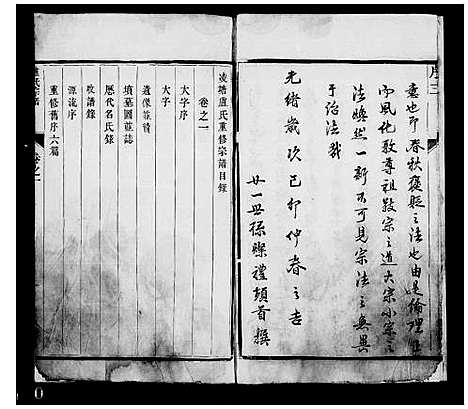 序三
意也即春秋褒貶之法也由是倫理正
而風化敦尊祖敬宗之道大宗小宗之
法煥然一新不可見宗法之無異
于治法哉
光緒歲次己卯仲春之吉
廿一世孫 禮頓首撰
凌塘盧氏重修宗譜目錄
卷之一
大字序
大字
遺像並讚
墳墓圖並誌
歷代名氏錄
收譜錄
源流序
重修舊序六篇
卷之一
0